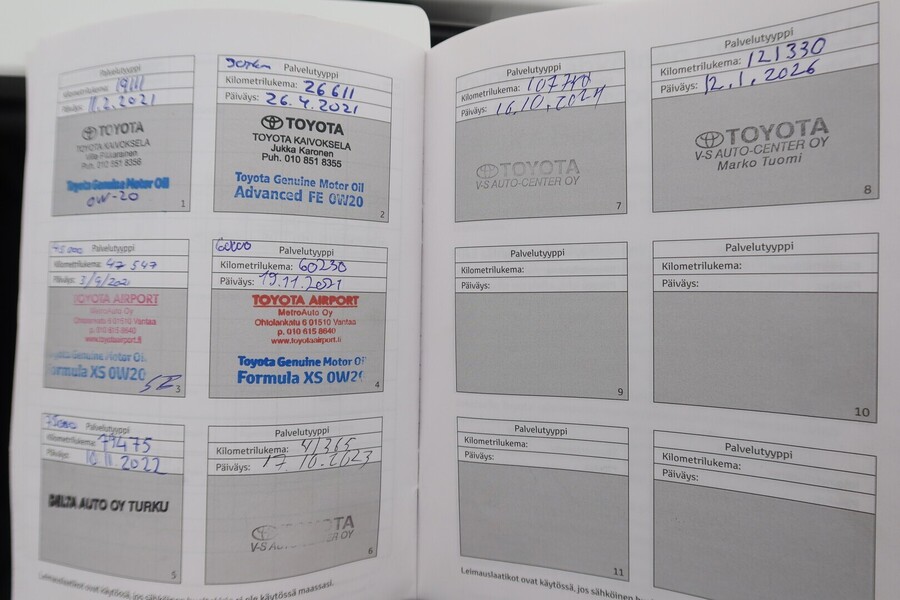 Palvelutyyppi
Kilometrilukema: 19111
Päiväys: 11.2.2021
TOYOTA
TOYOTA KAIVOKSELA
Puh. 010 851 8356
Toyota Genuine Motor Oil
0W-20
1
Palvelutyyppi
Kilometrilukema: 26611
Päiväys: 26.4.2021
TOYOTA
TOYOTA KAIVOKSELA
Jukka Karonen
Puh. 010 851 8355
Toyota Genuine Motor Oil
Advanced FE 0W20
2
45000 Palvelutyyppi
Kilometrilukema: 47 547
Päiväys: 3/9/2021
TOYOTA AIRPORT
MetroAuto Oy
Ohtolankatu 6 01510 Vantaa
p. 010 615 8640
www.toyotaairport.fi
Toyota Genuine Motor Oil
Formula XS 0W20
3
60000 Palvelutyyppi
Kilometrilukema: 60230
Päiväys: 19.11.2021
TOYOTA AIRPORT
MetroAuto Oy
Ohtolankatu 6 01510 Vantaa
p. 010 615 8640
www.toyotaairport.fi
Toyota Genuine Motor Oil
Formula XS 0W20
4
75000 Palvelutyyppi
Kilometrilukema: 79475
Päiväys: 10.11.2022
DELTA AUTO OY TURKU
5
Palvelutyyppi
Kilometrilukema: 91365
Päiväys: 17.10.2023
TOYOTA
V-S AUTO-CENTER OY
6
Leimauslaatikot ovat käytössä, jos
Palvelutyyppi
Kilometrilukema:
Päiväys: 16.10.2024
TOYOTA
V-S AUTO-CENTER OY
7
Palvelutyyppi
Kilometrilukema: 121330
Päiväys: 12.1.2026
TOYOTA
V-S AUTO-CENTER OY
Marko Tuomi
8
Palvelutyyppi
Kilometrilukema:
Päiväys:
9
Palvelutyyppi
Kilometrilukema:
Päiväys:
10
Palvelutyyppi
Kilometrilukema:
Päiväys:
11
Palvelutyyppi
Kilometrilukema:
Päiväys:
Leimauslaatikot ovat käytössä, jos sähköinen